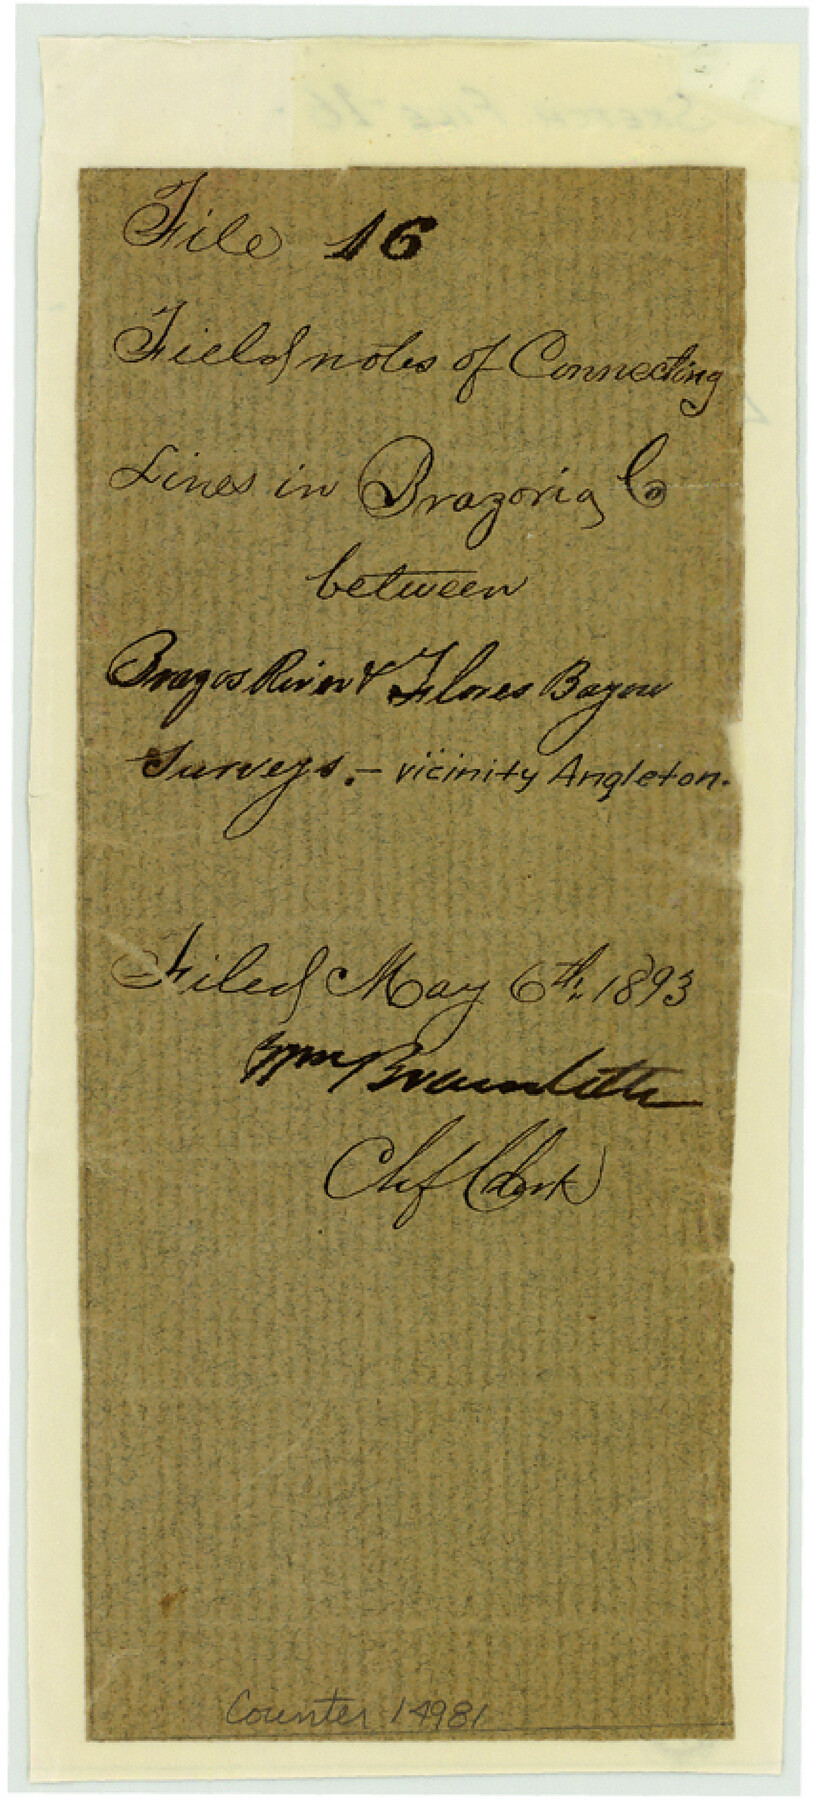 File 16
Field notes of Connecting
Lines in Brazoria Co
between
Brazos River & Flores Bayou
Surveys. - vicinity Angleton.
Filed May 6th, 1893
Wm
Chf Clerk
Counter 14981